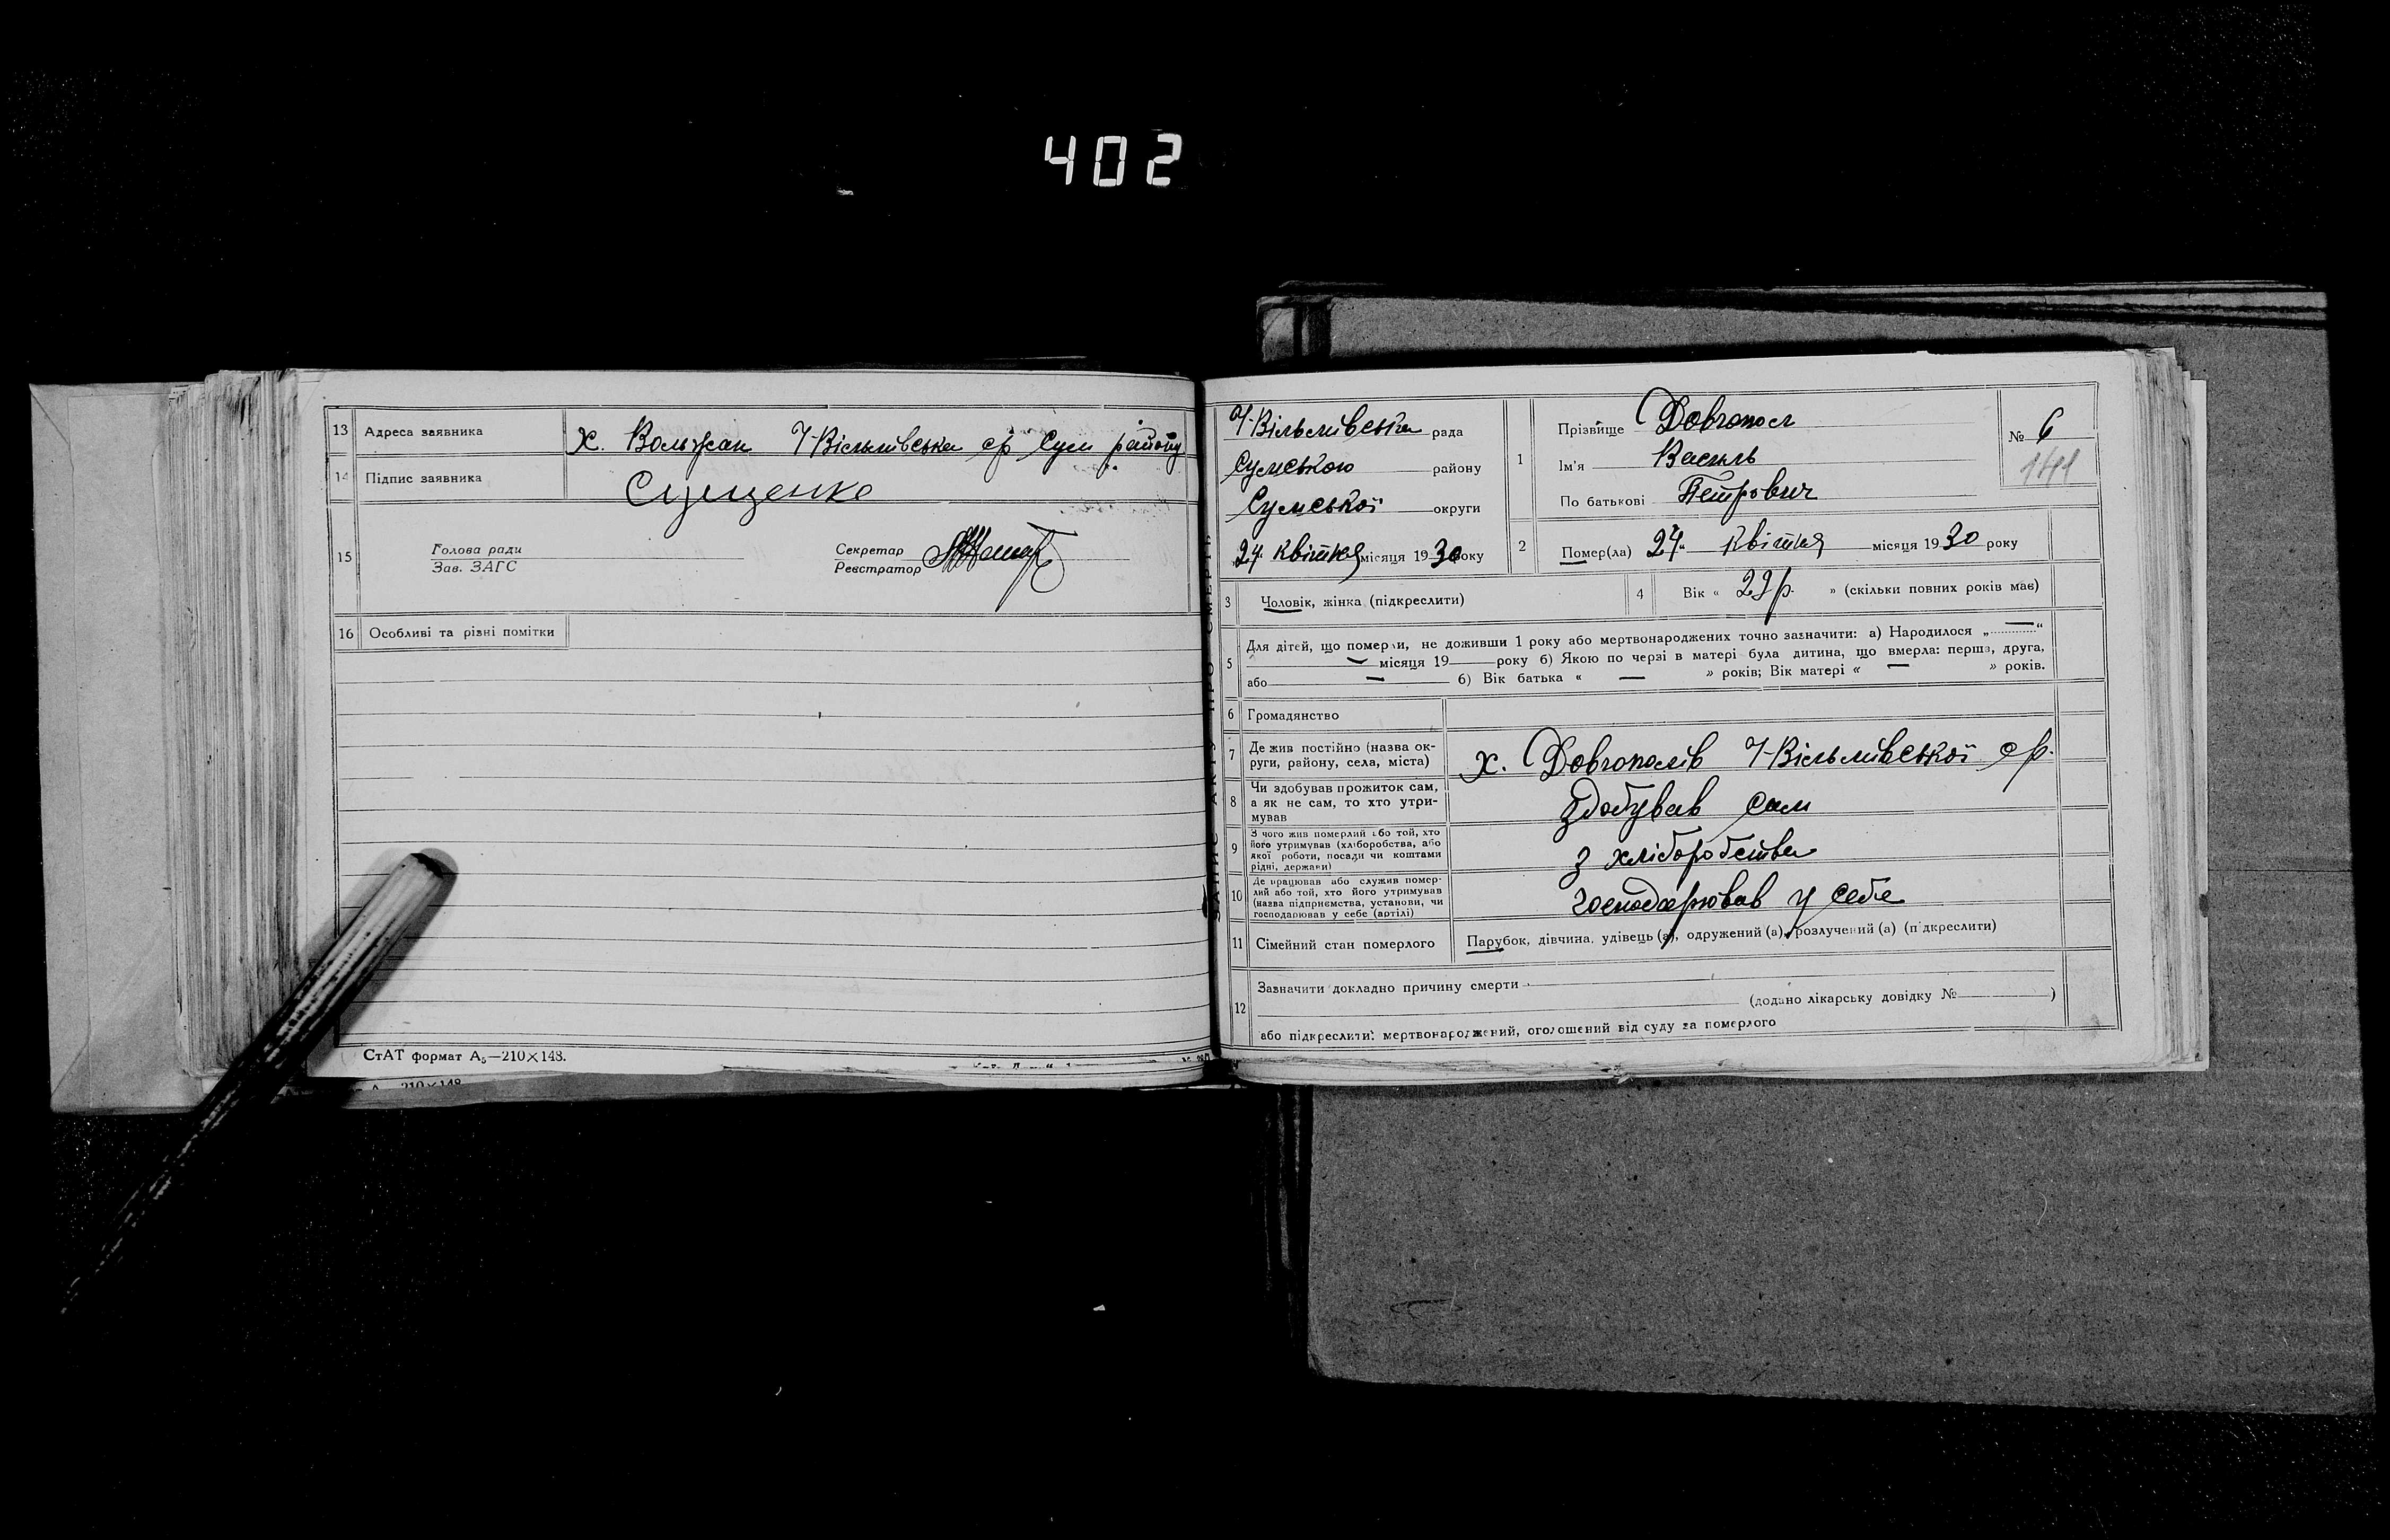 402
13 Адреса заявника х. Вольжан Ч-Вільмівська ср Сум району
14 Підпис заявника Сущенко
15 Голова ради
Зав. ЗАГС
Секретар
Реєстратор
16 Особливі та різні помітки
СтАТ формат А₅—210×148.
210×148
ЗАПИС АКТУ ПРО СМЕРТЬ
Ч-Вільмівська рада
Сумського району
Сумської округи
24 квітня місяця 1930 року
1 Прізвище Довгопол
Ім'я Василь
По батькові Петрович
№ 6
2 Помер(ла) 24 квітня місяця 1930 року
3 Чоловік, жінка (підкреслити)
4 Вік « 29 р. » (скільки повних років має)
5 Для дітей, що померли, не доживши 1 року або мертвонароджених точно зазначити: а) Народилося „—“
— місяця 19 року б) Якою по черзі в матері була дитина, що вмерла: перша, друга,
або — 6) Вік батька « — » років; Вік матері « — » років.
6 Громадянство
7 Де жив постійно (назва ок-
руги, району, села, міста) х. Довгополів Ч-Вільмівської ср.
8 Чи здобував прожиток сам,
а як не сам, то хто утри-
мував здобував сам
9 З чого жив померлий або той, хто
його утримував (хліборобства, або
якої роботи, посади чи коштами
рідні, держави) з хліборобства
10 Де працював або служив помер-
лий або той, хто його утримував
(назва підприємства, установи, чи
господарював у себе (артілі) господарював у себе
11 Сімейний стан померлого Парубок, дівчина, удівець (а), одружений (а), розлучений (а) (підкреслити)
12 Зазначити докладно причину смерти
(додано лікарську довідку № )
або підкреслити: мертвонароджений, оголошений від суду за померлого